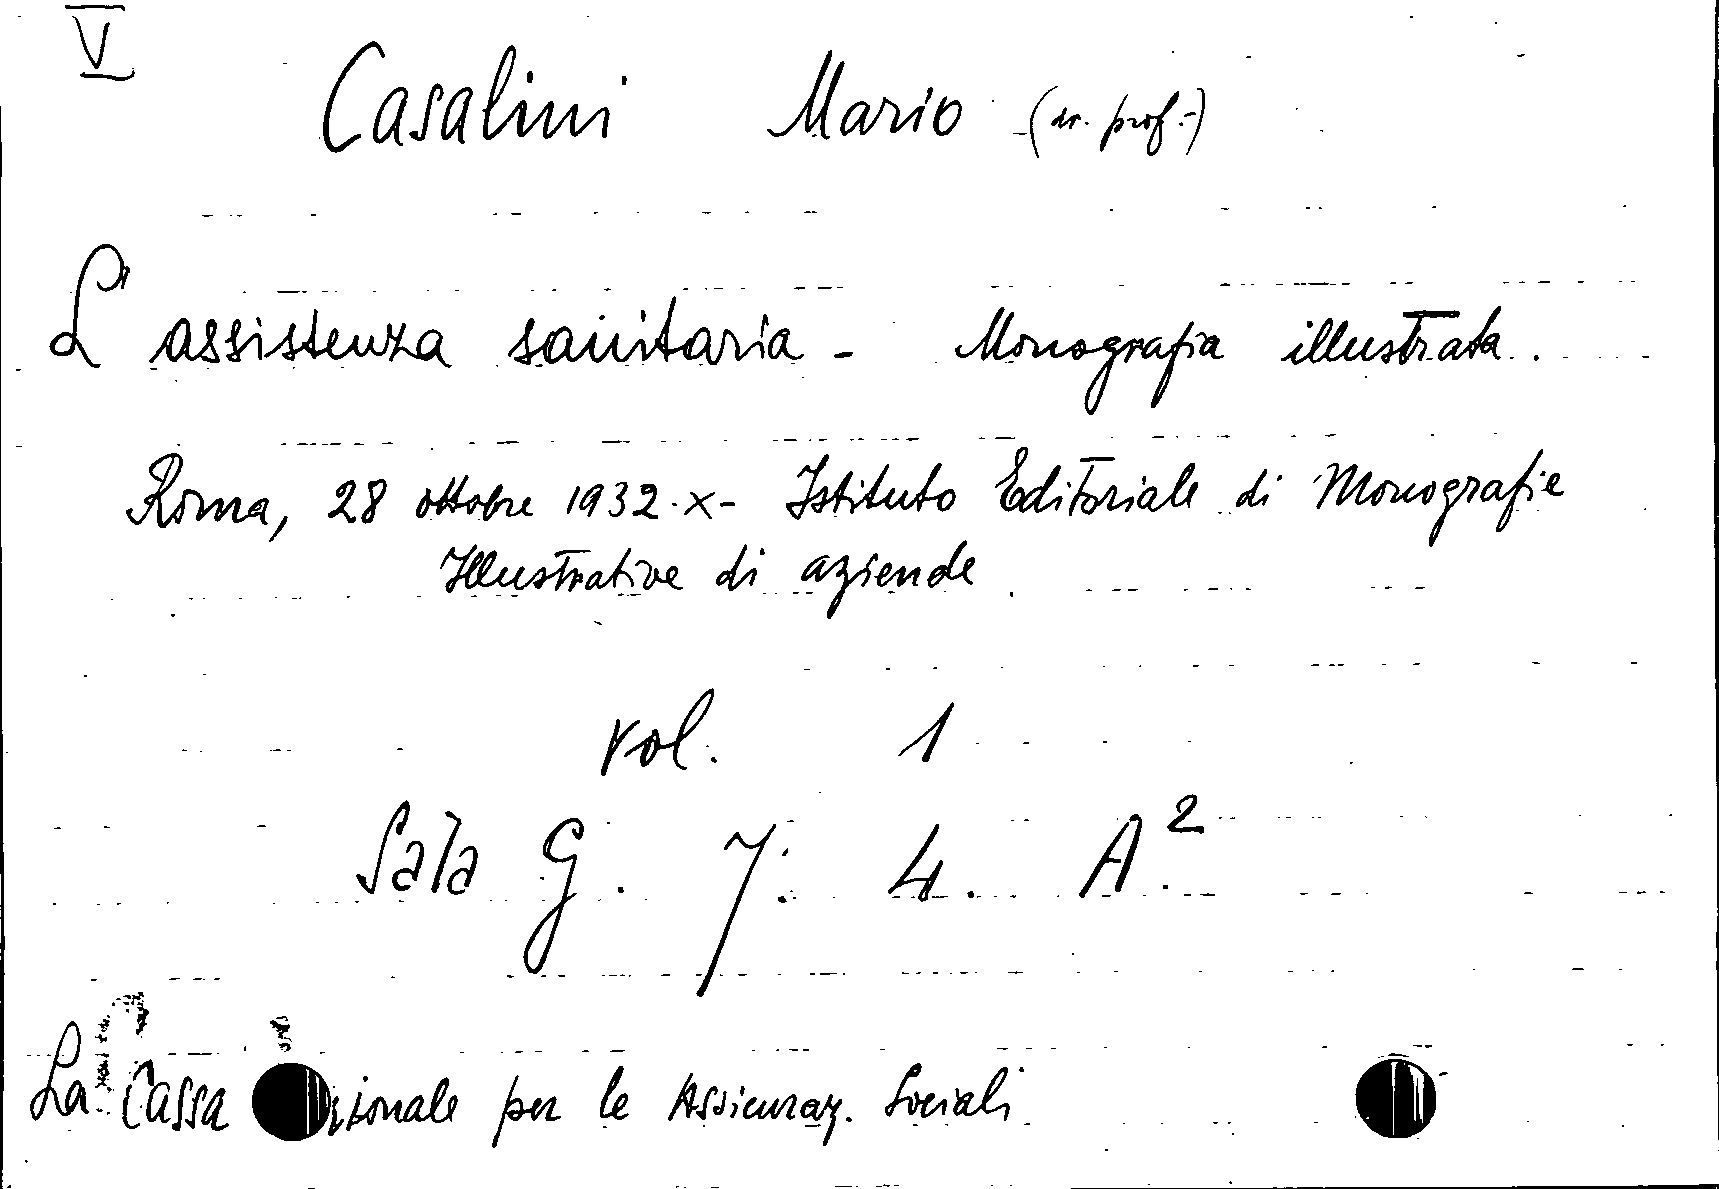 V
Casalini Mario (dr. prof.)
L'assistenza sanitaria - Monografia illustrata.
Roma, 28 ottobre 1932.X - Istituto Editoriale di Monografie
Illustrative di aziende
vol. 1
Sala G. 7. 4. A.²
La Cassa zionale per le Assicuraz. Sociali